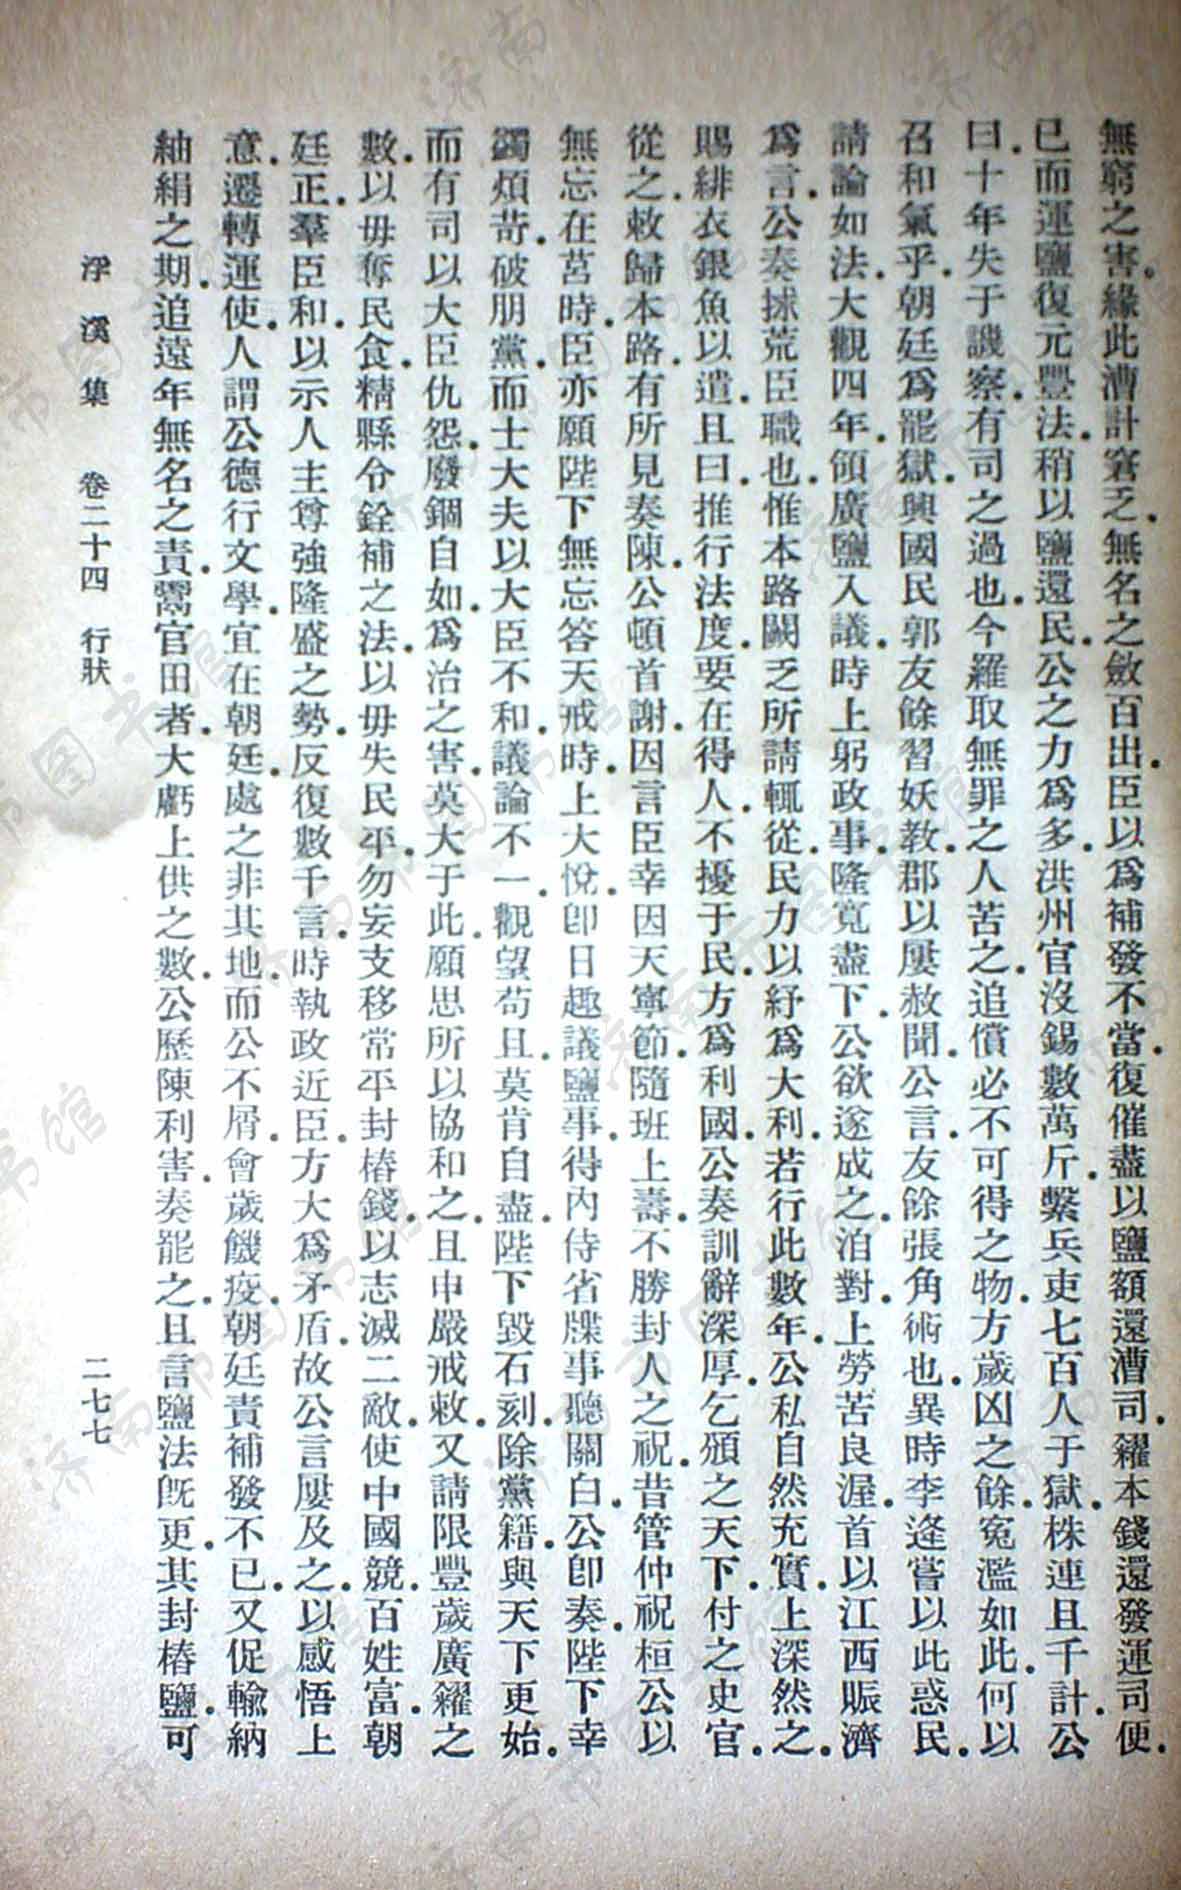 無窮之害。緣此漕計窘乏.無名之斂百出.臣以爲補發不當.復催盡以鹽額還漕司.糴本錢還發運司便.
已而運鹽復元豐法.稍以鹽還民.公之力爲多.洪州官沒錫數萬斤.繫兵吏七百人于獄.株連且千計.公
曰.十年失于譏察.有司之過也.今羅取無罪之人苦之.追償必不可得之物.方歲凶之餘.冤濫如此.何以
召和氣乎.朝廷爲罷獄.興國民郭友餘習妖教.郡以屢赦聞.公言.友餘張角術也.異時李逄嘗以此惑民.
請論如法.大觀四年.領廣鹽入議.時上躬政事.隆寬盡下.公欲遂成之.洎對.上勞苦良渥.首以江西賑濟
爲言.公奏捄荒臣職也.惟本路闕乏所請輒從.民力以紓爲大利.若行此數年.公私自然充實.上深然之.
賜緋衣銀魚以遣.且曰.推行法度.要在得人.不擾于民.方爲利國.公奏訓辭深厚.乞頒之天下.付之史官.
從之.敕歸本路.有所見奏陳.公頓首謝.因言臣幸因天寧節.隨班上壽.不勝封人之祝.昔管仲祝桓公以
無忘在莒時.臣亦願陛下無忘答天戒時.上大悅.卽日趣議鹽事.得內侍省牒事聽關白.公卽奏陛下幸
蠲煩苛.破朋黨.而士大夫以大臣不和.議論不一.觀望苟且.莫肯自盡.陛下毀石刻.除黨籍.與天下更始.
而有司以大臣仇怨.廢錮自如.爲治之害.莫大于此.願思所以協和之.且申嚴戒敕.又請限豐歲廣糴之
數.以毋奪民食.精縣令銓補之法.以毋失民平.勿妄支移常平封樁錢.以志滅二敵.使中國競.百姓富.朝
廷正.羣臣和.以示人主尊強隆盛之勢.反復數千言.時執政近臣.方大爲矛盾.故公言屢及之.以感悟上
意.遷轉運使.人謂公德行文學.宜在朝廷.處之非其地.而公不屑.會歲饑疫.朝廷責補發不已.又促輸納
紬絹之期.追遠年無名之責.鬻官田者.大虧上供之數.公歷陳利害.奏罷之.且言鹽法旣更.其封樁鹽.可
浮溪集 卷二十四 行狀 二七七